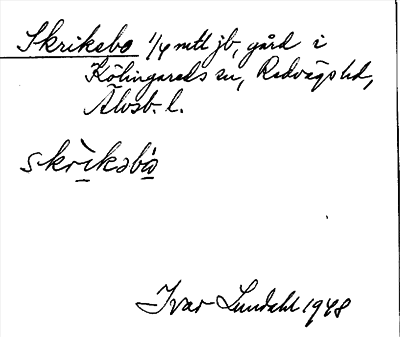 Skriksbo 1/4 mtl jb, gård i
Kölingareds sn, Redvägs hd,
Älvsb. l.
skrìksbó
Ivar Lundahl 1948